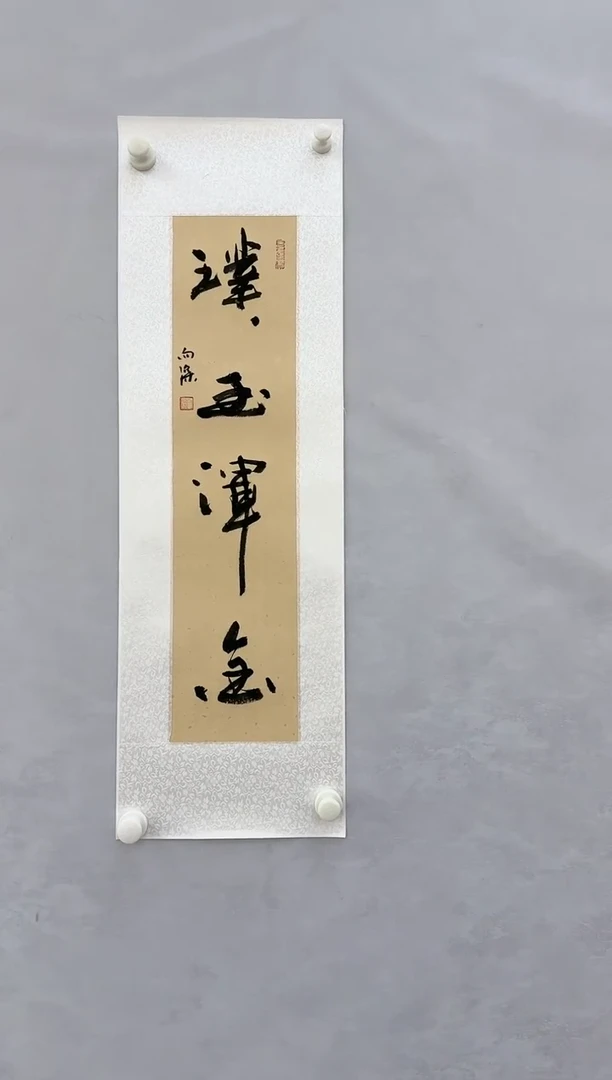 璞玉渾金
向深